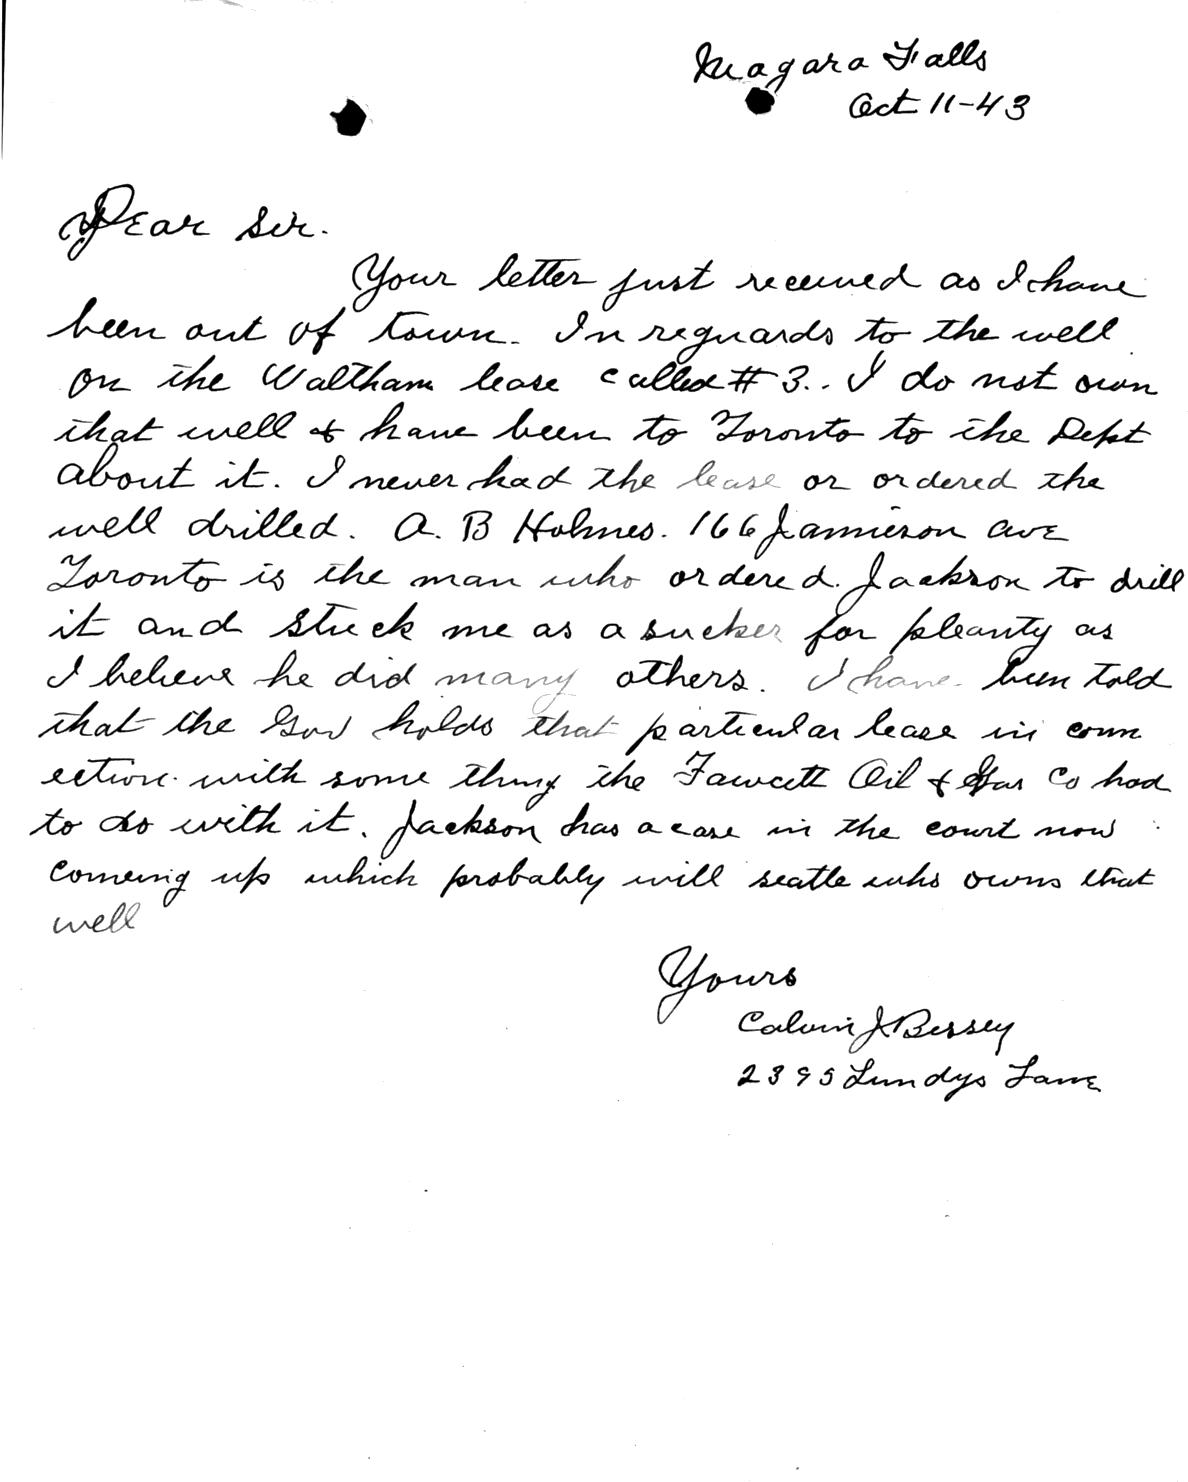 Niagara Falls
Oct 11-43
Dear Sir.
Your letter just received as I have
been out of town. In reguards to the well
on the Waltham lease called # 3.. I do not own
that well & have been to Toronto to the Dept
about it. I never had the lease or ordered the
well drilled. A. B Holmes. 166 Jamieson ave
Toronto is the man who ordered Jackson to drill
it and stuck me as a sucker for pleanty as
I believe he did many others. I have been told
that the Gov holds that particular lease in conn
ection with some thing the Fawcett Oil & Gas Co had
to do with it. Jackson has a case in the court now
comeing up which probably will seatle who owns that
well
Yours
Calvin J Bessey
2395 Lundys Lane